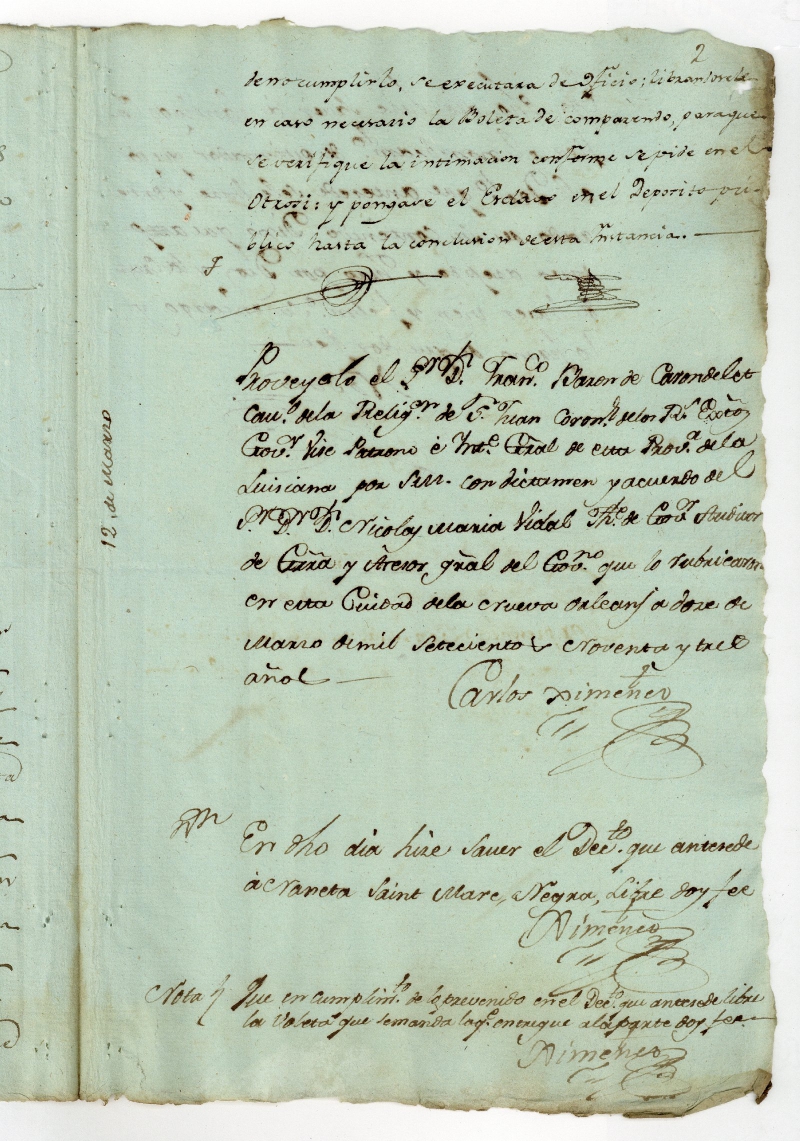 2
de no cumplirlo, se executara de Oficio; libran
en caso necesario la Boleta de comparendo, paraque
se verifique la intimacion conforme se pide en el
Otrosi: y pongase el Esclavo en el Deposito pu-
blico hasta la conclusion de esta Ynstancia.
Proveyolo el Sr. Dn. Franco. Baron de Carondelet
Cavo. dela Religon. de Sn. Juan Coronl. delos Rs. Exctos
Govr. Vise Patrono è Yntte. Gral de esta Prova. dela
Luisiana por S.M. con dictamen y acuerdo del
Sr. Dr. Dn. Nicolas Maria Vidal Tte. de Govr. Auditor
de Grra y Asesor gral del Govno. que lo rubricaron
en esta Ciudad dela nueva Orleans a doze de
Marzo de mil setecientos noventa y tres
años
Carlos Ximenes
12,, de Marzo
En dho dia hize saver el Decto. que antesede
à Naneta Saint Marc, Negra, Libre doy fee
Ximenes
Nota Que en cumplimto. de lo prevenido en el Decto. que antesede libre
la Voleta que se manda la qe. entregue a la parte doy fee
Ximenes